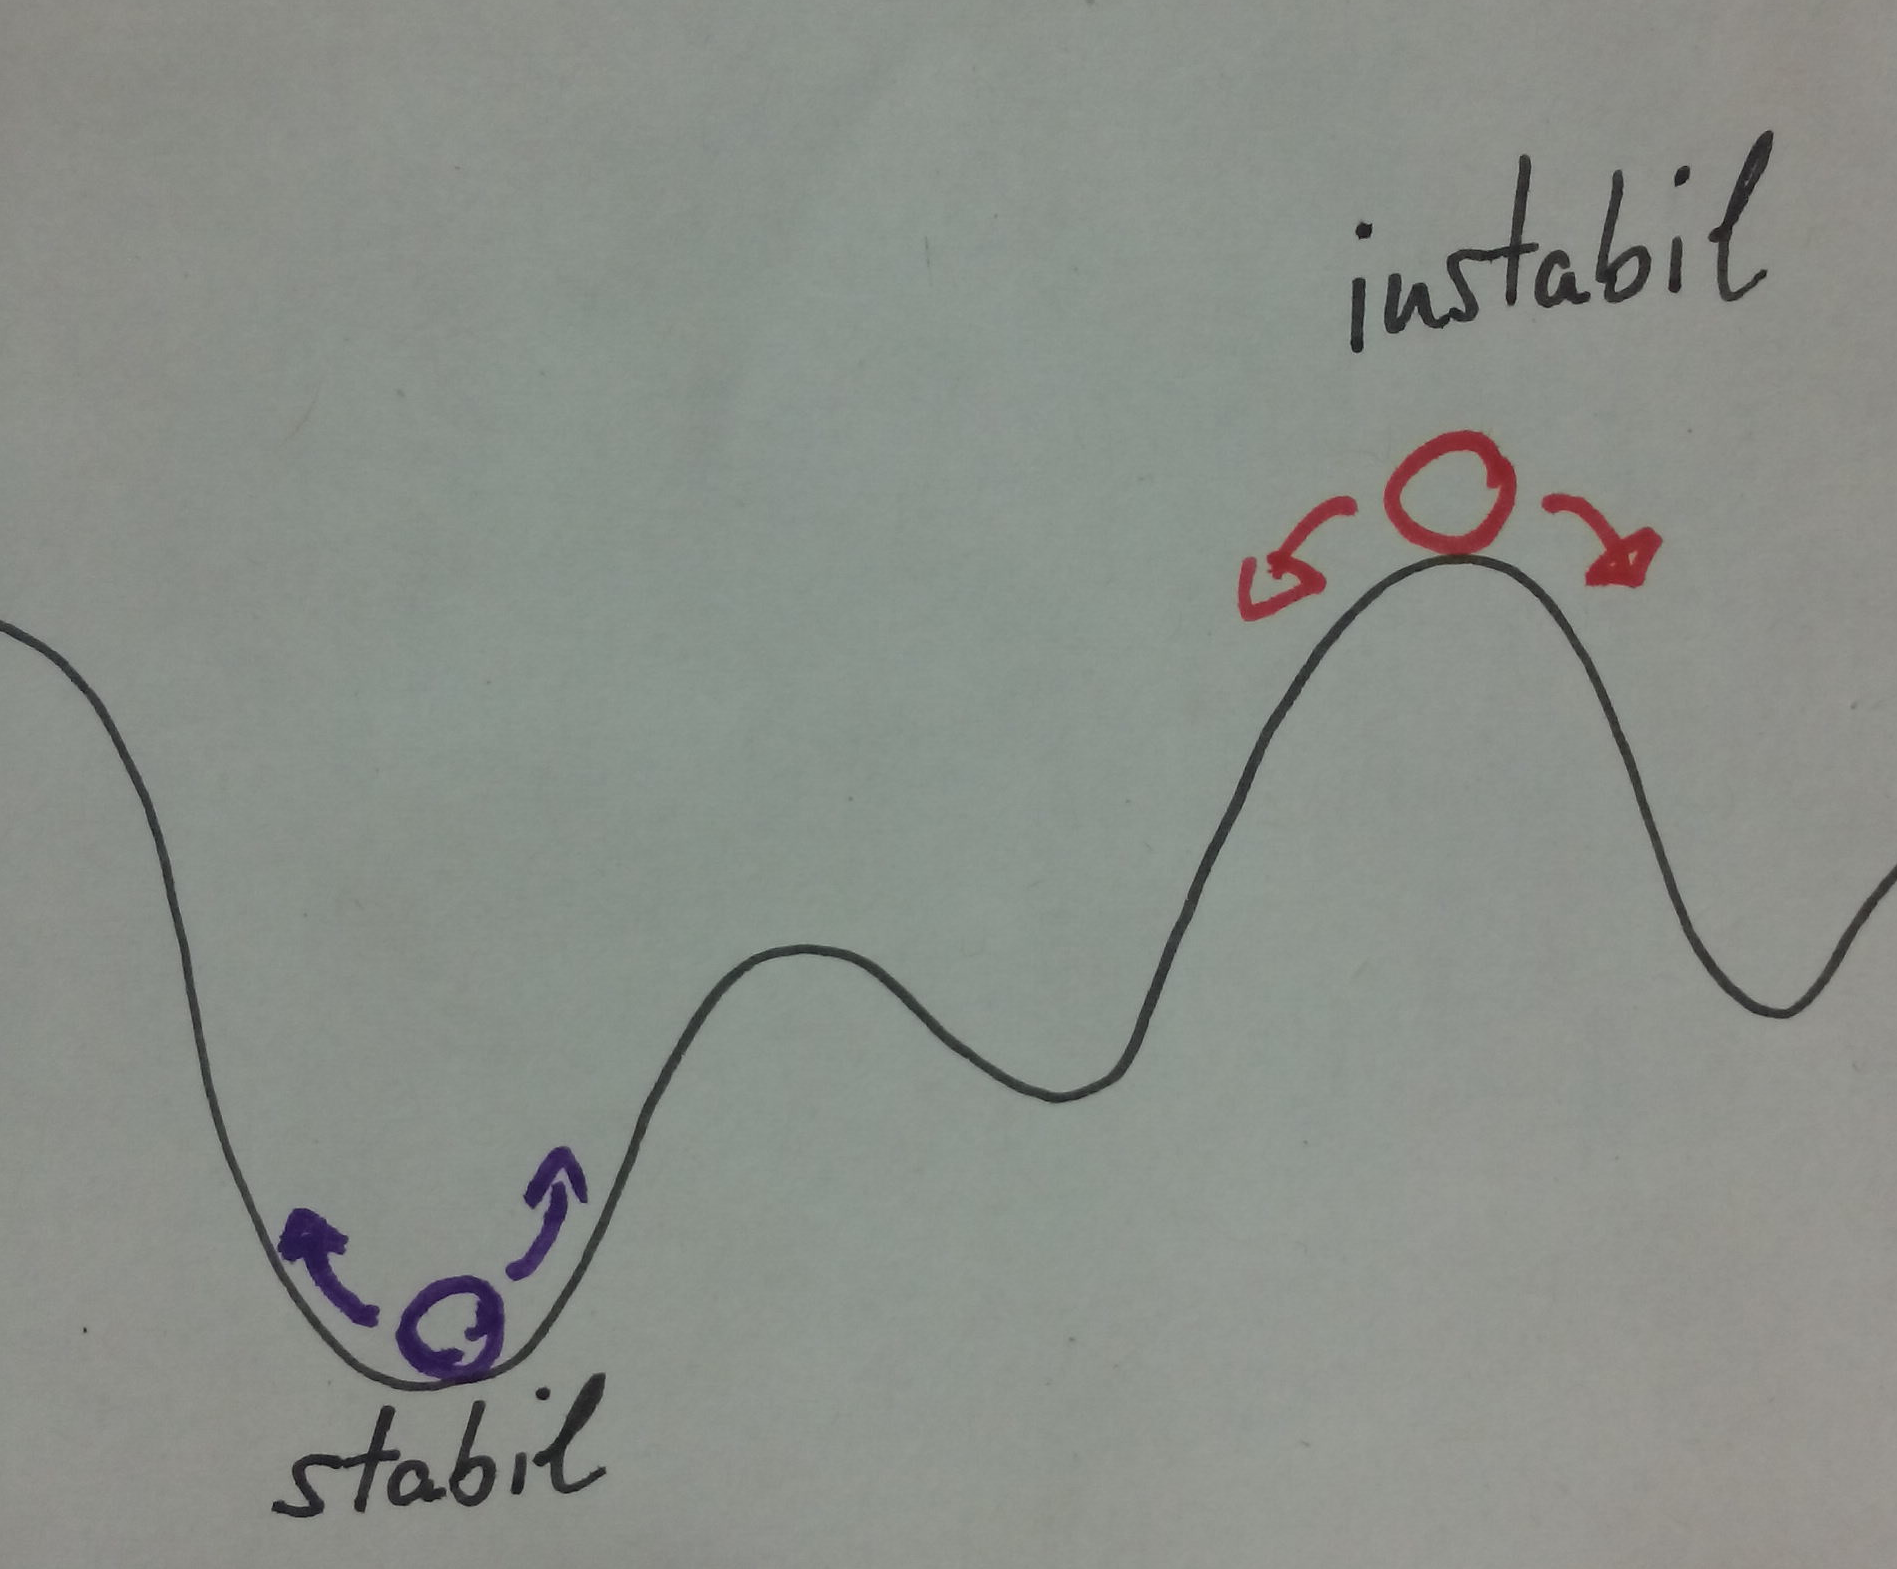 instabil
stabil